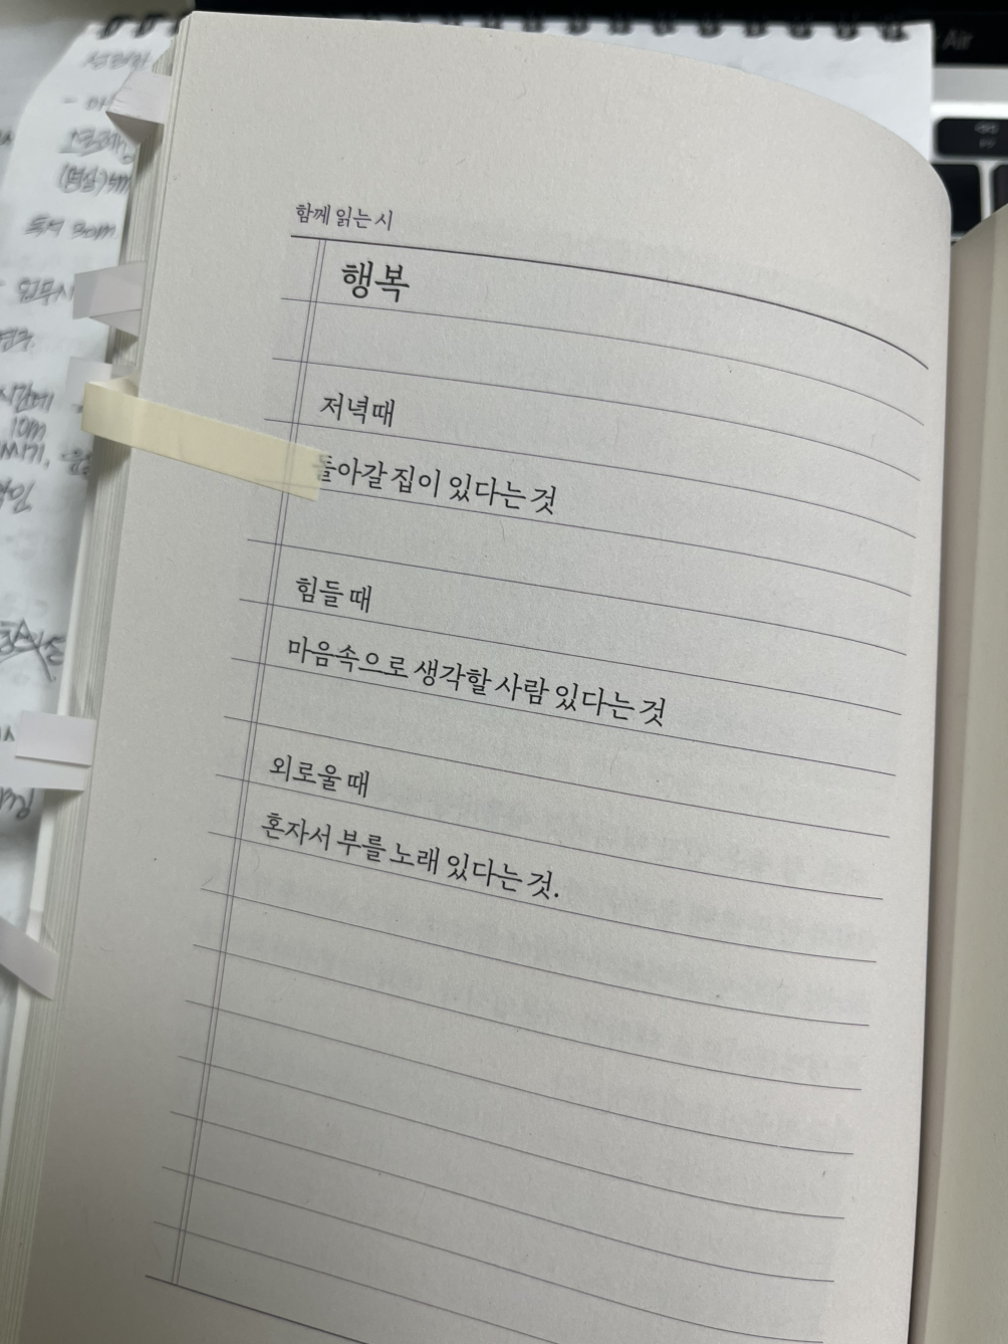 함께 읽는 시
행복
저녁때
돌아갈 집이 있다는 것
힘들 때
마음속으로 생각할 사람 있다는 것
외로울 때
혼자서 부를 노래 있다는 것.
Air
독서 30m
10m